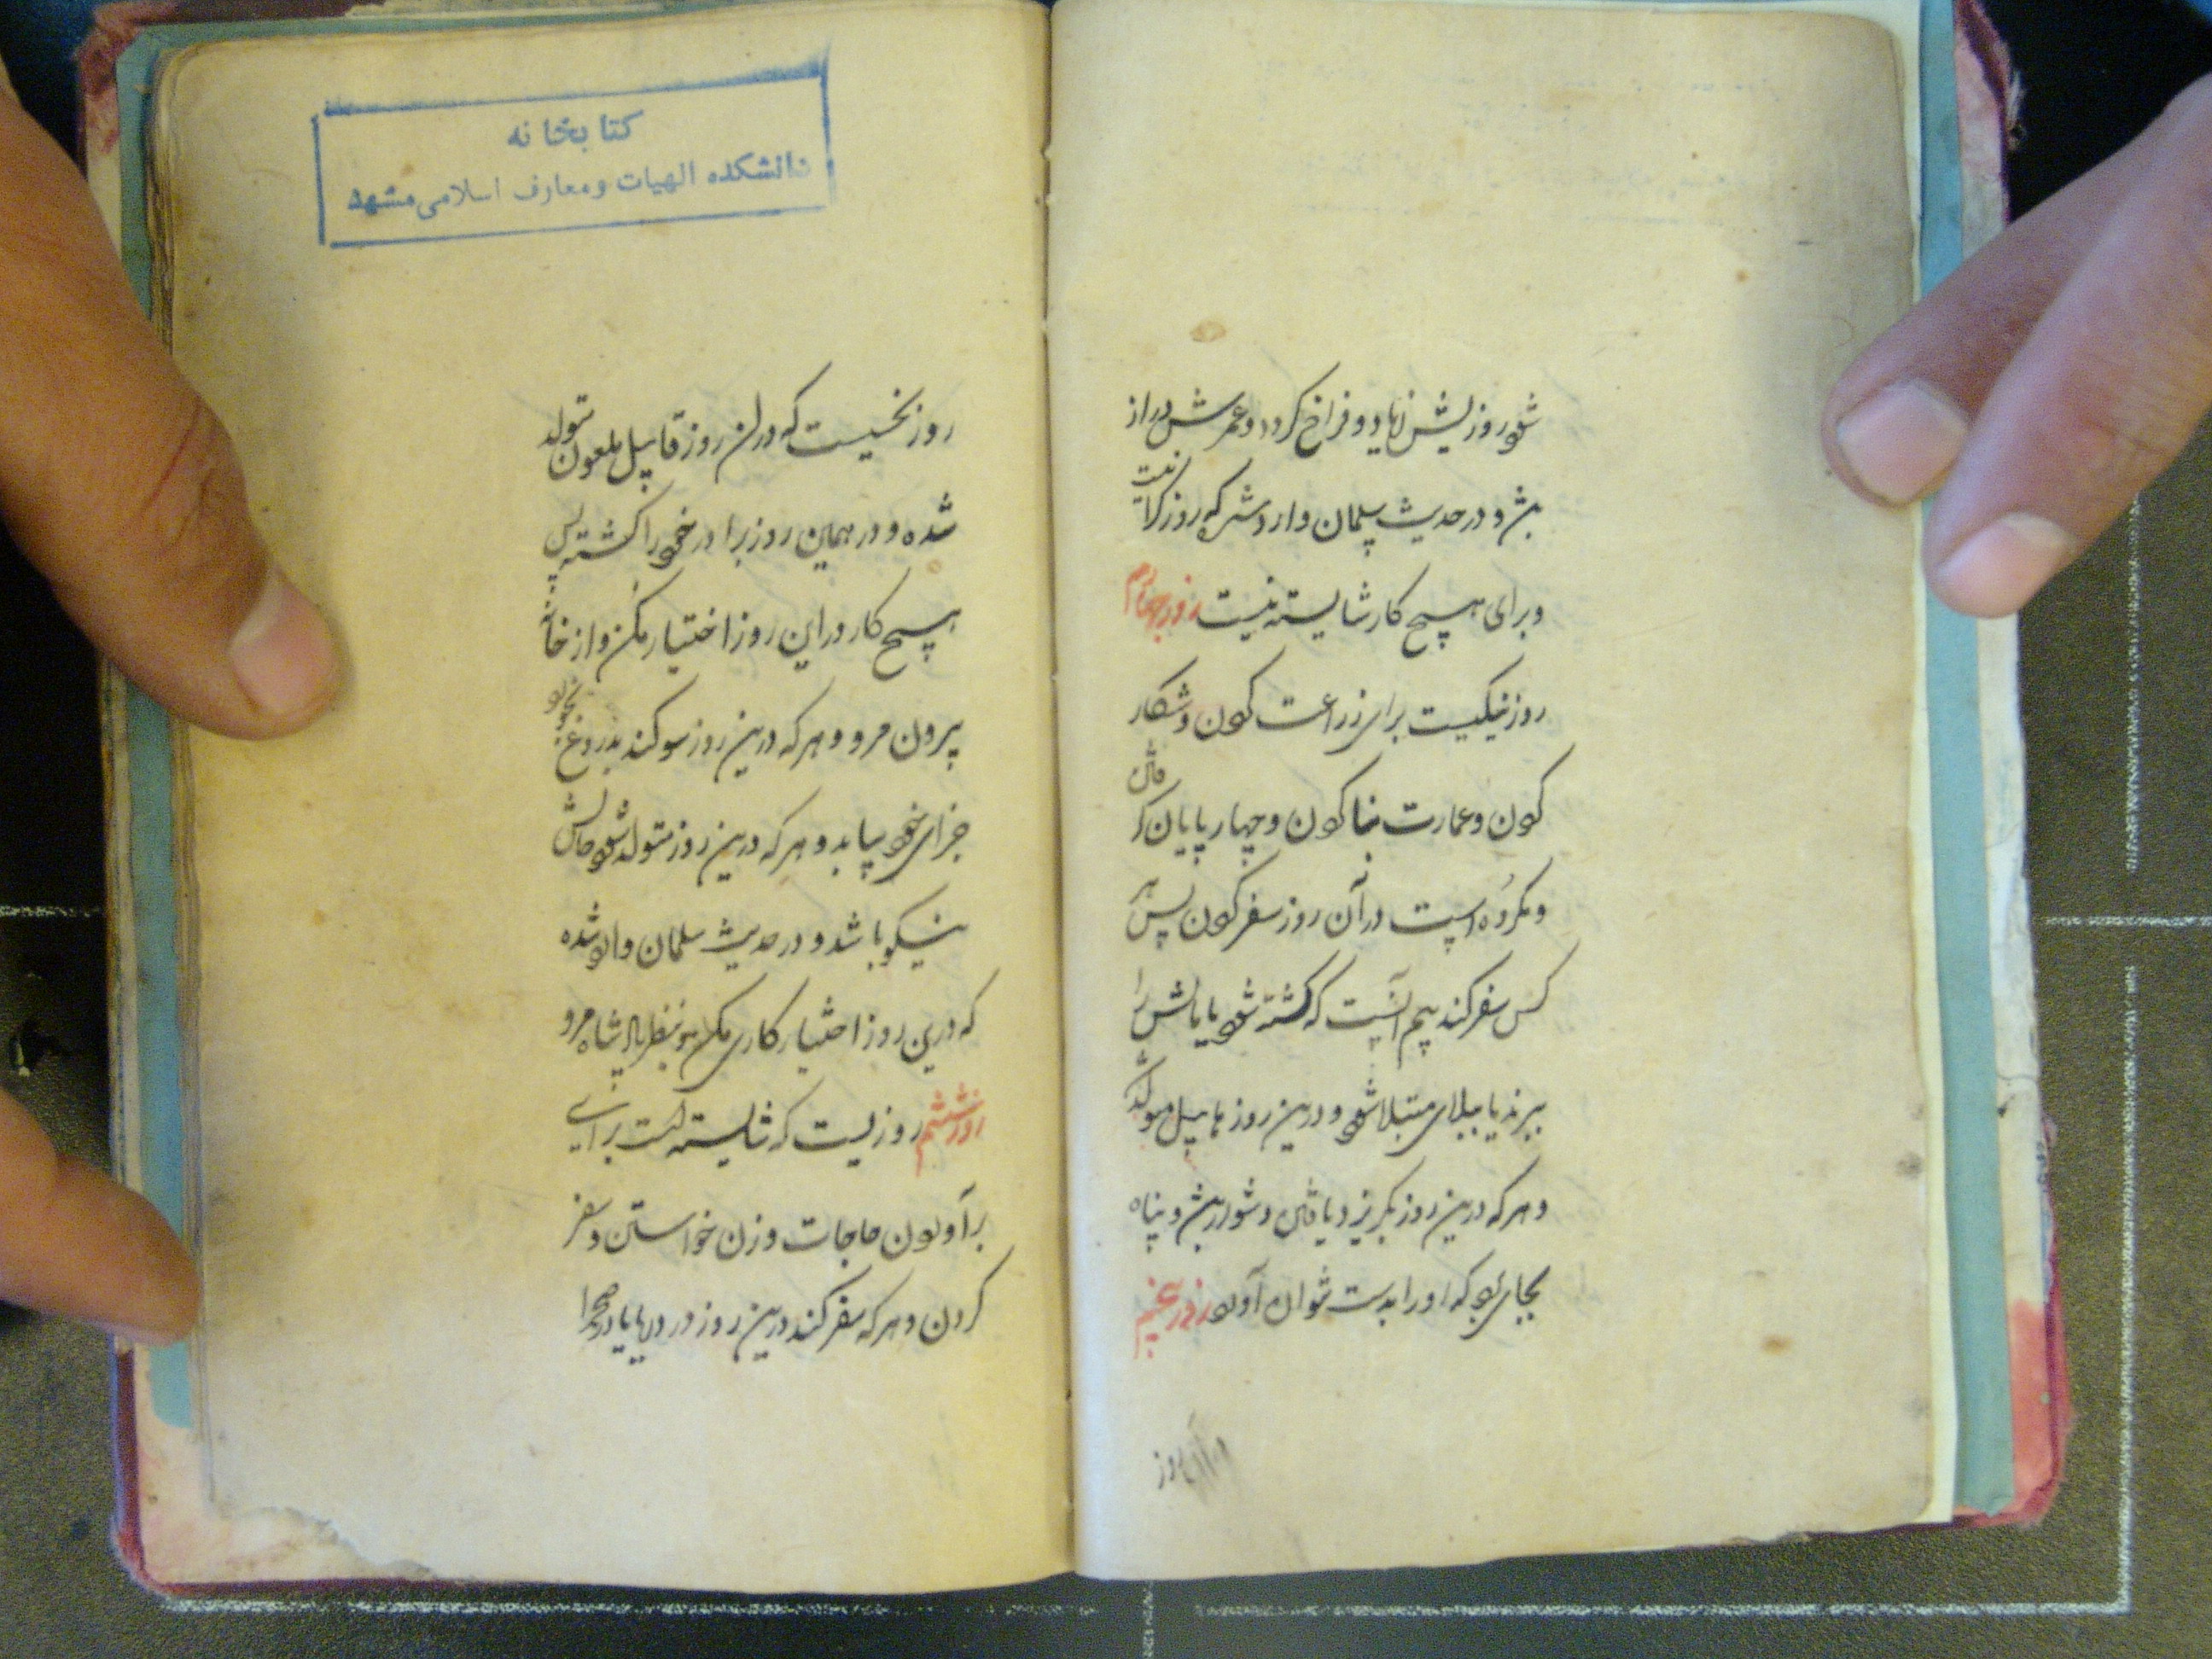 شود روزیش زیاد و فراخ گردد و عمرش دراز
بشد و در حدیث سلمان وارد شده که روز کرانیست
و برای هیچ کار شایسته نیست روز چهارم
روز نیکیست برای زراعت کردن و شکار
کردن و عمارت بنا کردن و چهار پایان
و مکروه است در آن روز سفر کردن پس هر
کس سفر کند بیم آنست که کشته شود یا مالش را
ببرند یا ببلای مبتلا شود و درین روز هابیل متولد شد
و هر که درین روز بگریزد یافتن دشوار بشد و پناه
بجای برد که او را بدست نتوان آورد روز پنجم
روز
کتابخانه
دانشکده الهیات و معارف اسلامی مشهد
روز نحسیست که در آن روز قابیل ملعون متولد
شده و در همین روز برادر خود را کشته پس
هیچ کار در این روز اختیار مکن و از خانه
بیرون مرو و هر که درین روز سوکند بدروغ بخورد
جزای خود بیابد و هر که درین روز متولد شود حالش
نیکو باشد و در حدیث سلمان وارد شده
که درین روز اختیار کاری مکن و بنظر پادشاه مرو
روز ششم روزیست که شایسته است برای
برآوردن حاجات و زن خواستن و سفر
کردن و هر که سفر کند درین روز در دریا یا در صحرا